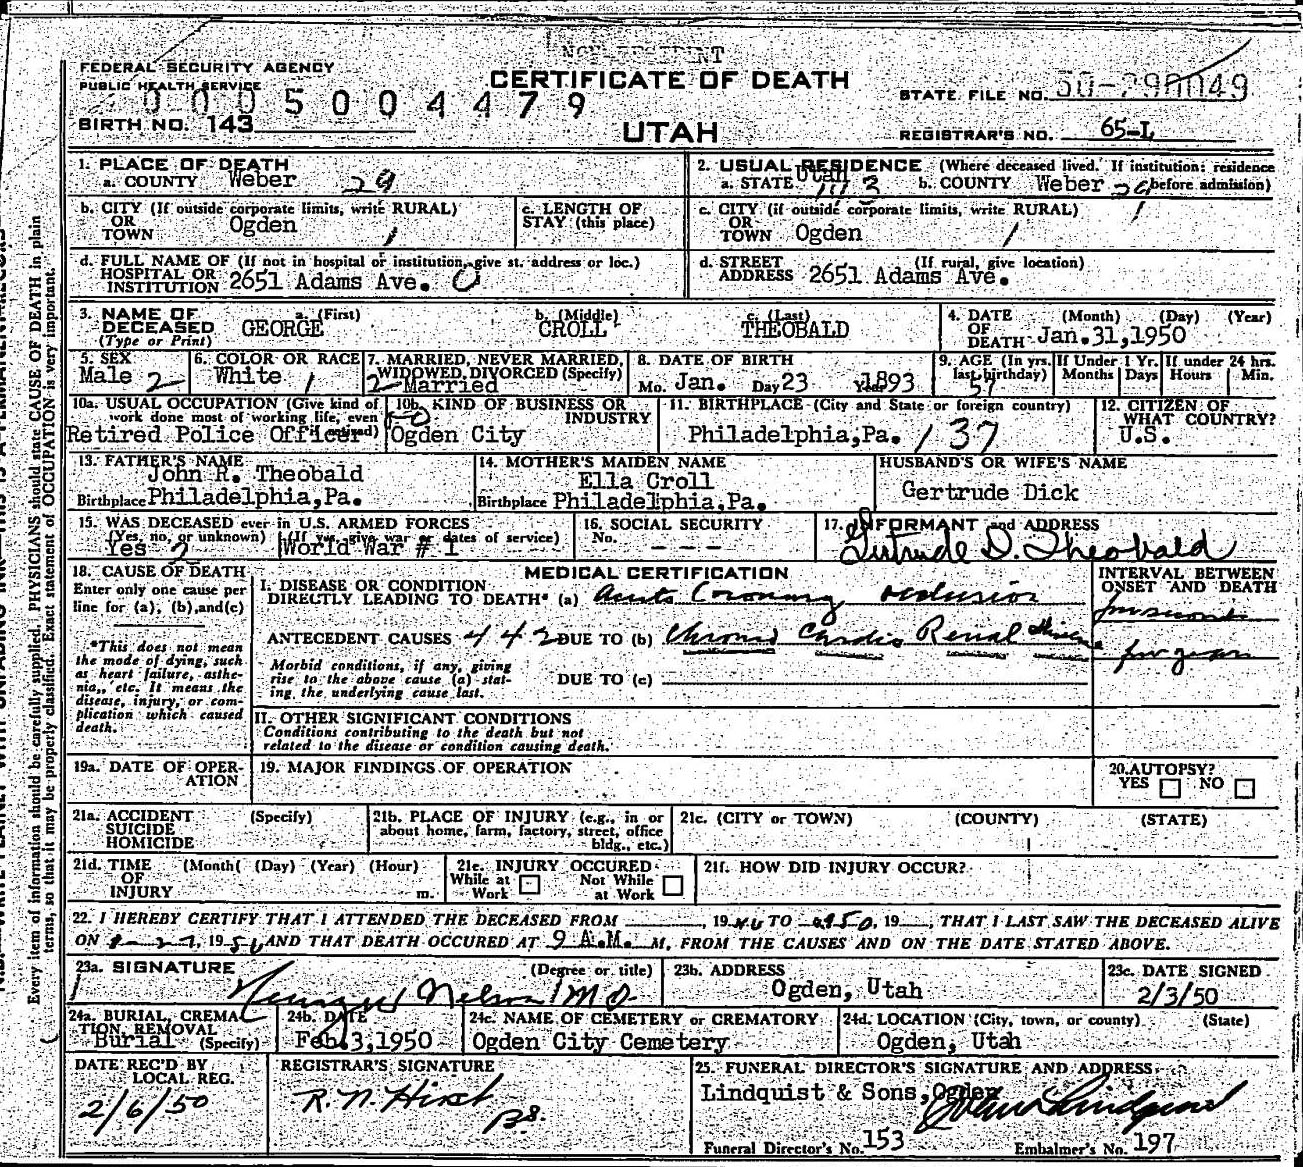 FEDERAL SECURITY AGENCY
PUBLIC HEALTH SERVICE
CERTIFICATE OF DEATH
STATE FILE NO. 50-290049
0005004479
BIRTH NO. 143
UTAH
REGISTRAR'S NO. 65-L
1. PLACE OF DEATH
a. COUNTY Weber 29
2. USUAL RESIDENCE (Where deceased lived. If institution: residence before admission)
a. STATE Utah b. COUNTY Weber 29
b. CITY (If outside corporate limits, write RURAL)
OR
TOWN Ogden 1
c. LENGTH OF
STAY (this place)
c. CITY (if outside corporate limits, write RURAL)
OR
TOWN Ogden 1
d. FULL NAME OF (If not in hospital or institution, give st. address or loc.)
HOSPITAL OR
INSTITUTION 2651 Adams Ave. 0
d. STREET (If rural, give location)
ADDRESS 2651 Adams Ave.
3. NAME OF DECEASED
(Type or Print)
a. (First) GEORGE
b. (Middle) CROLL
c. (Last) THEOBALD
4. DATE OF DEATH (Month) (Day) (Year)
Jan. 31, 1950
5. SEX
Male 2
6. COLOR OR RACE
White 1
7. MARRIED, NEVER MARRIED,
WIDOWED, DIVORCED (Specify)
2 Married
8. DATE OF BIRTH
Mo. Jan. Day 23 Year 1893
9. AGE (In yrs. last birthday)
57
If Under 1 Yr. Months Days
If under 24 hrs. Hours Min.
10a. USUAL OCCUPATION (Give kind of
work done most of working life, even
if retired)
Retired Police Officer
10b. KIND OF BUSINESS OR
INDUSTRY
Ogden City
11. BIRTHPLACE (City and State or foreign country)
Philadelphia, Pa. 137
12. CITIZEN OF
WHAT COUNTRY?
U.S.
13. FATHER'S NAME
John R. Theobald
Birthplace Philadelphia, Pa.
14. MOTHER'S MAIDEN NAME
Ella Croll
Birthplace Philadelphia, Pa.
HUSBAND'S OR WIFE'S NAME
Gertrude Dick
15. WAS DECEASED ever in U.S. ARMED FORCES
(Yes, no, or unknown) (If yes, give war or dates of service)
Yes 2 World War # 1
16. SOCIAL SECURITY
No. - - -
17. INFORMANT and ADDRESS
Gertrude D. Theobald
18. CAUSE OF DEATH
Enter only one cause per
line for (a), (b), and (c)
*This does not mean
the mode of dying, such
as heart failure, asthe-
nia, etc. It means the
disease, injury, or com-
plication which caused
death.
MEDICAL CERTIFICATION
INTERVAL BETWEEN
ONSET AND DEATH
I. DISEASE OR CONDITION
DIRECTLY LEADING TO DEATH* (a) Acute Coronary occlusion
ANTECEDENT CAUSES 442 DUE TO (b) Chronic Cardio Renal Disease few years
Morbid conditions, if any, giving
rise to the above cause (a) stat-
ing the underlying cause last.
DUE TO (c)
II. OTHER SIGNIFICANT CONDITIONS
Conditions contributing to the death but not
related to the disease or condition causing death.
19a. DATE OF OPER-
ATION
19. MAJOR FINDINGS OF OPERATION
20. AUTOPSY?
YES NO
21a. ACCIDENT (Specify)
SUICIDE
HOMICIDE
21b. PLACE OF INJURY (e.g., in or
about home, farm, factory, street, office
bldg., etc.)
21c. (CITY or TOWN) (COUNTY) (STATE)
21d. TIME (Month) (Day) (Year) (Hour)
OF
INJURY m.
21e. INJURY OCCURED
While at Work Not While at Work
21f. HOW DID INJURY OCCUR?
22. I HEREBY CERTIFY THAT I ATTENDED THE DECEASED FROM , 19 TO 1950, 19 , THAT I LAST SAW THE DECEASED ALIVE
ON , 1950 AND THAT DEATH OCCURED AT 9 A.M. M, FROM THE CAUSES AND ON THE DATE STATED ABOVE.
23a. SIGNATURE (Degree or title)
Nelson MD
23b. ADDRESS
Ogden, Utah
23c. DATE SIGNED
2/3/50
24a. BURIAL, CREMA-
TION, REMOVAL
Burial (Specify)
24b. DATE
Feb. 3, 1950
24c. NAME OF CEMETERY or CREMATORY
Ogden City Cemetery
24d. LOCATION (City, town, or county) (State)
Ogden, Utah
DATE REC'D BY
LOCAL REG.
2/6/50
REGISTRAR'S SIGNATURE
R. N. Hirst
25. FUNERAL DIRECTOR'S SIGNATURE AND ADDRESS
Lindquist & Sons, Ogden
Funeral Director's No. 153 Embalmer's No. 197
Every item of information should be carefully supplied. PHYSICIANS should state CAUSE OF DEATH in plain
terms, so that it may be properly classified. Exact statement of OCCUPATION is very important.